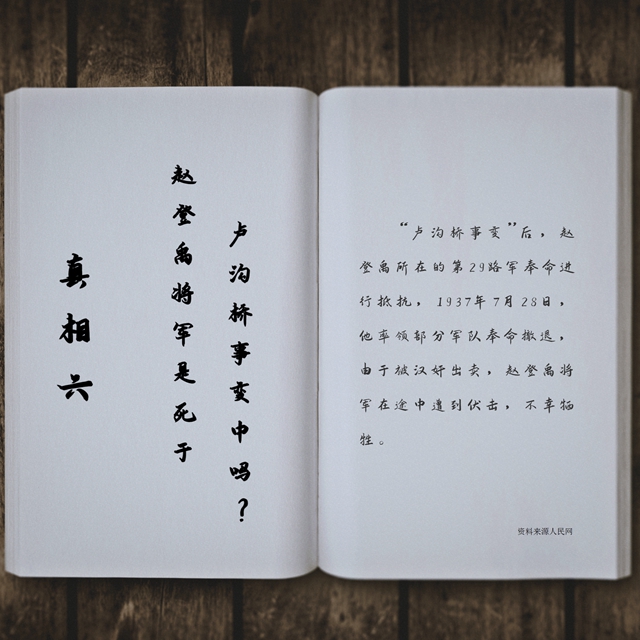 真相六
赵登禹将军是死于
卢沟桥事变中吗？
“卢沟桥事变”后，赵
登禹所在的第29路军奉命进
行抵抗，1937年7月28日，
他率领部分军队奉命撤退，
由于被汉奸出卖，赵登禹将
军在途中遭到伏击，不幸牺
牲。
资料来源人民网